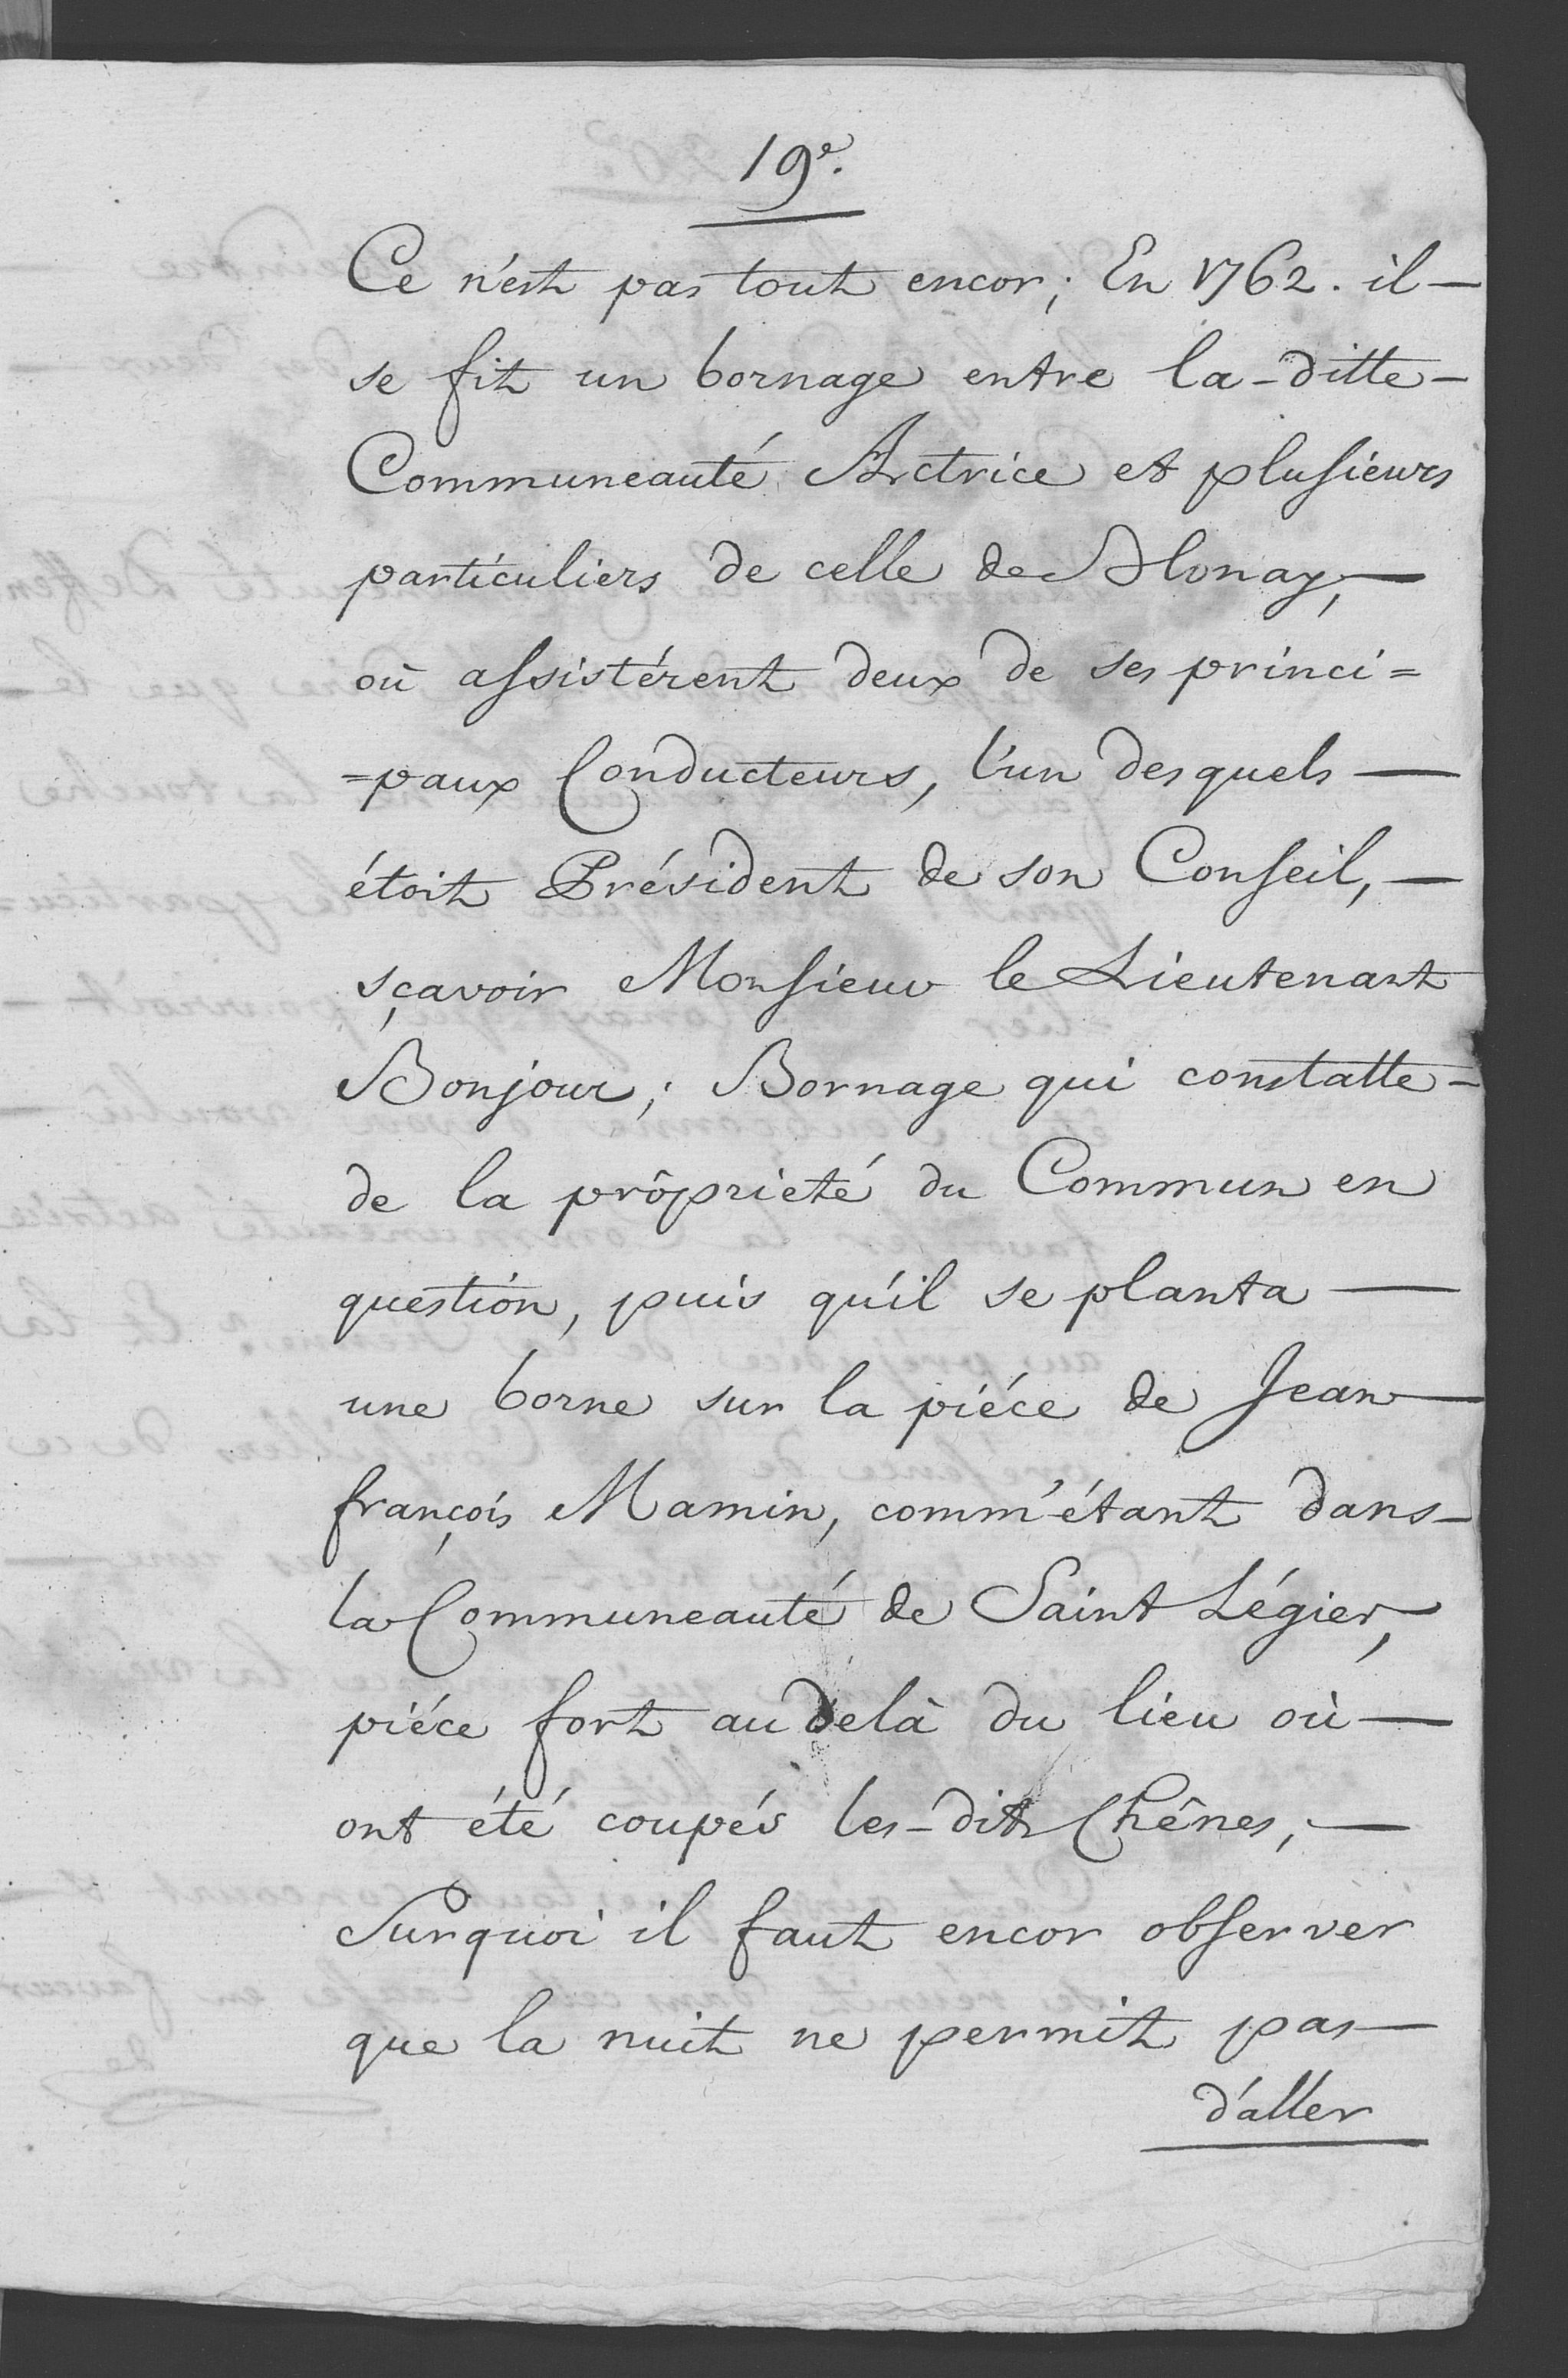 19e.
Ce n'est pas tout encor; En 1762. il —
se fit un bornage entre la-ditte —
Communeauté Actrice et plusieurs
particuliers de celle de Blonay, —
où assistérent deux de ses princi=
=paux Conducteurs, l'un desquels —
étoit Président de son Conseil, —
sçavoir Monsieur le Lieutenant
Bonjour; Bornage qui constatte —
de la prôprieté du Commun en
question, puis qu'il se planta —
une borne sur la piéce de Jean —
françois Mamin, comm'étant dans —
la Communeauté de Saint Légier,
piéce fort au delà du lieu où —
ont été coupés les-dits Chênes, —
Surquoi il faut encor observer
que la nuit ne permit pas —
d'aller